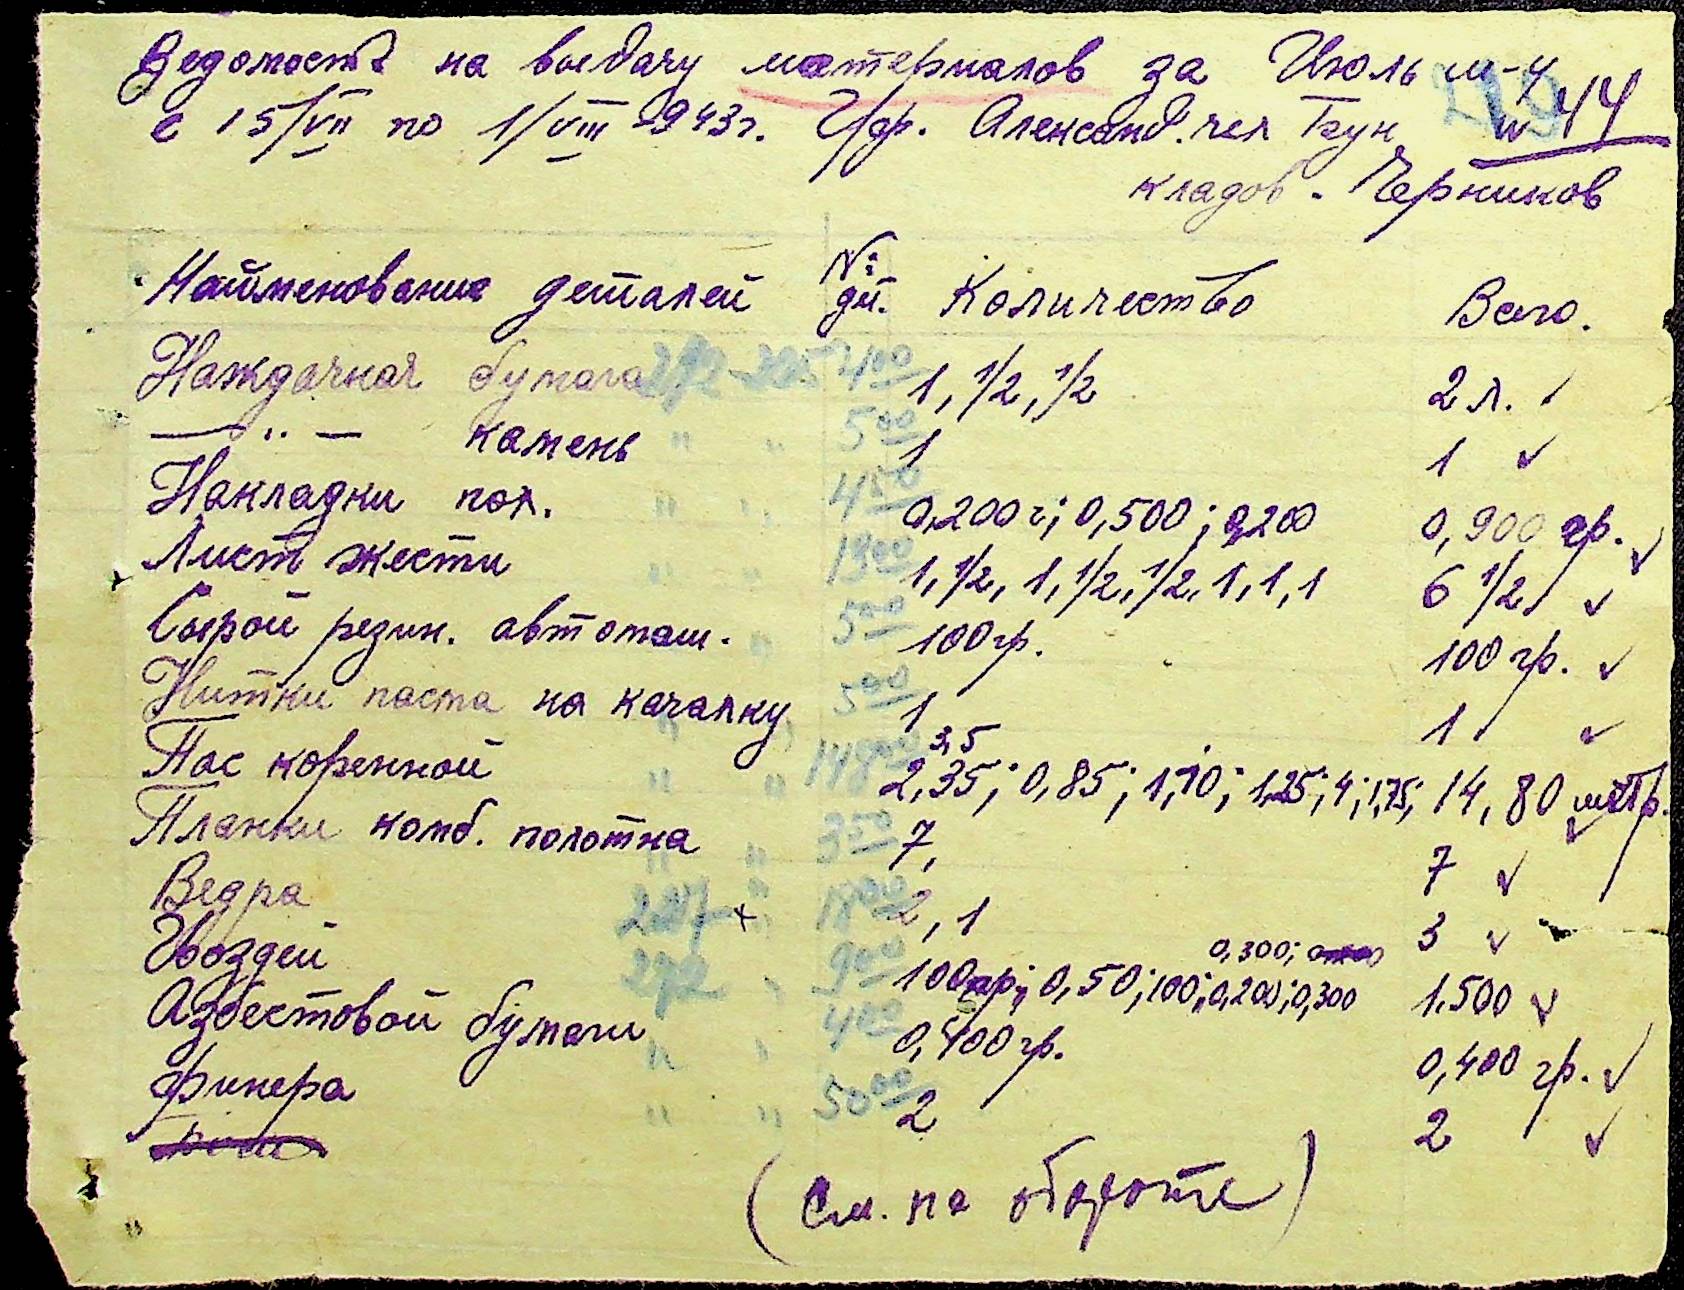 Ведомость на выдачу материалов за Июль м-ц
с 15/VII по 1/VIII 1943г. 44
кладов. Черников
Найменование деталей № дет. Количество Всего.
Наждачная бумага 272 4 00 1, 1/2, 1/2 2 л.
— " — камень " " 5 00 1 1
Накладки " " 4 50 0,200 г; 0,500; 0,200 0,900 гр.
Лист жести " " 19 00 1, 1/2, 1, 1/2, 1/2, 1, 1, 1 6 1/2
Сырой резин. автомаш. " 5 00 100 гр. 100 гр.
Нитки паста на качалку " " 5 00 1 1
3,5
Пас коренной " " 148 00 2,35; 0,85; 1,10; 1,25; 4; 1,75; 14,80 метр.
Планки комб. полотна " " 3 50 7, 7
Ведра + " 18 00 2, 1 3
0,300;
Гвоздей 272 " 9 00 100 гр; 0,50; 100; 0,200; 0,300 1.500
Азбестовой бумаги " " 4 00 0,400 гр. 0,400 гр.
Финера " " 50 00 2 2
(См. на обороте)